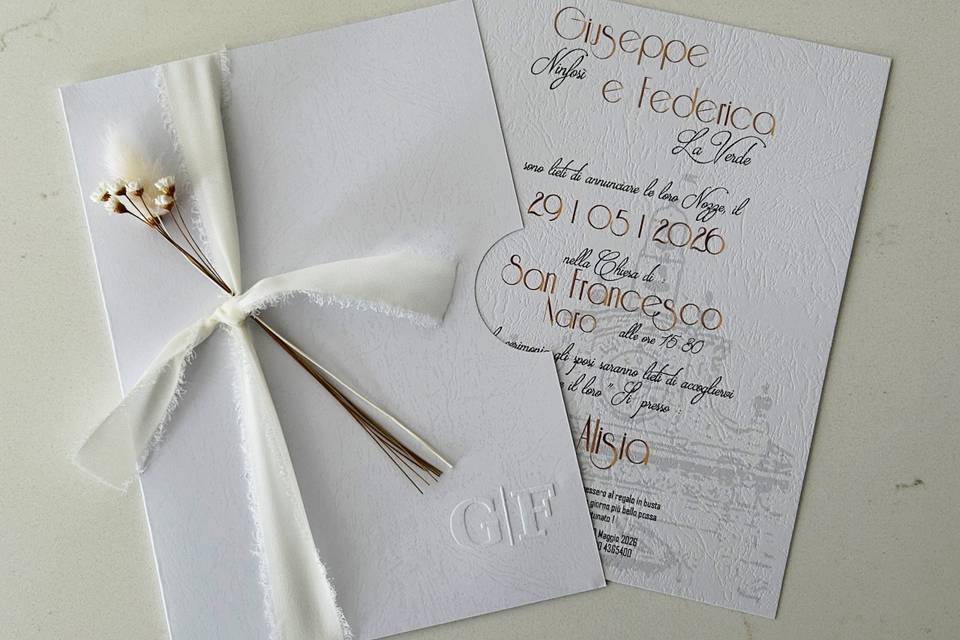 Giuseppe
Ninfosì
e Federica
La Verde
sono lieti di annunciare le loro Nozze, il
29 | 05 | 2026
nella Chiesa di
San Francesco
Naro alle ore 15:30
gli sposi saranno lieti di accogliervi
il loro "Sì" presso :
Alisia
al regalo in busta
giorno più bello possa
Maggio 2026
4365400
G|F